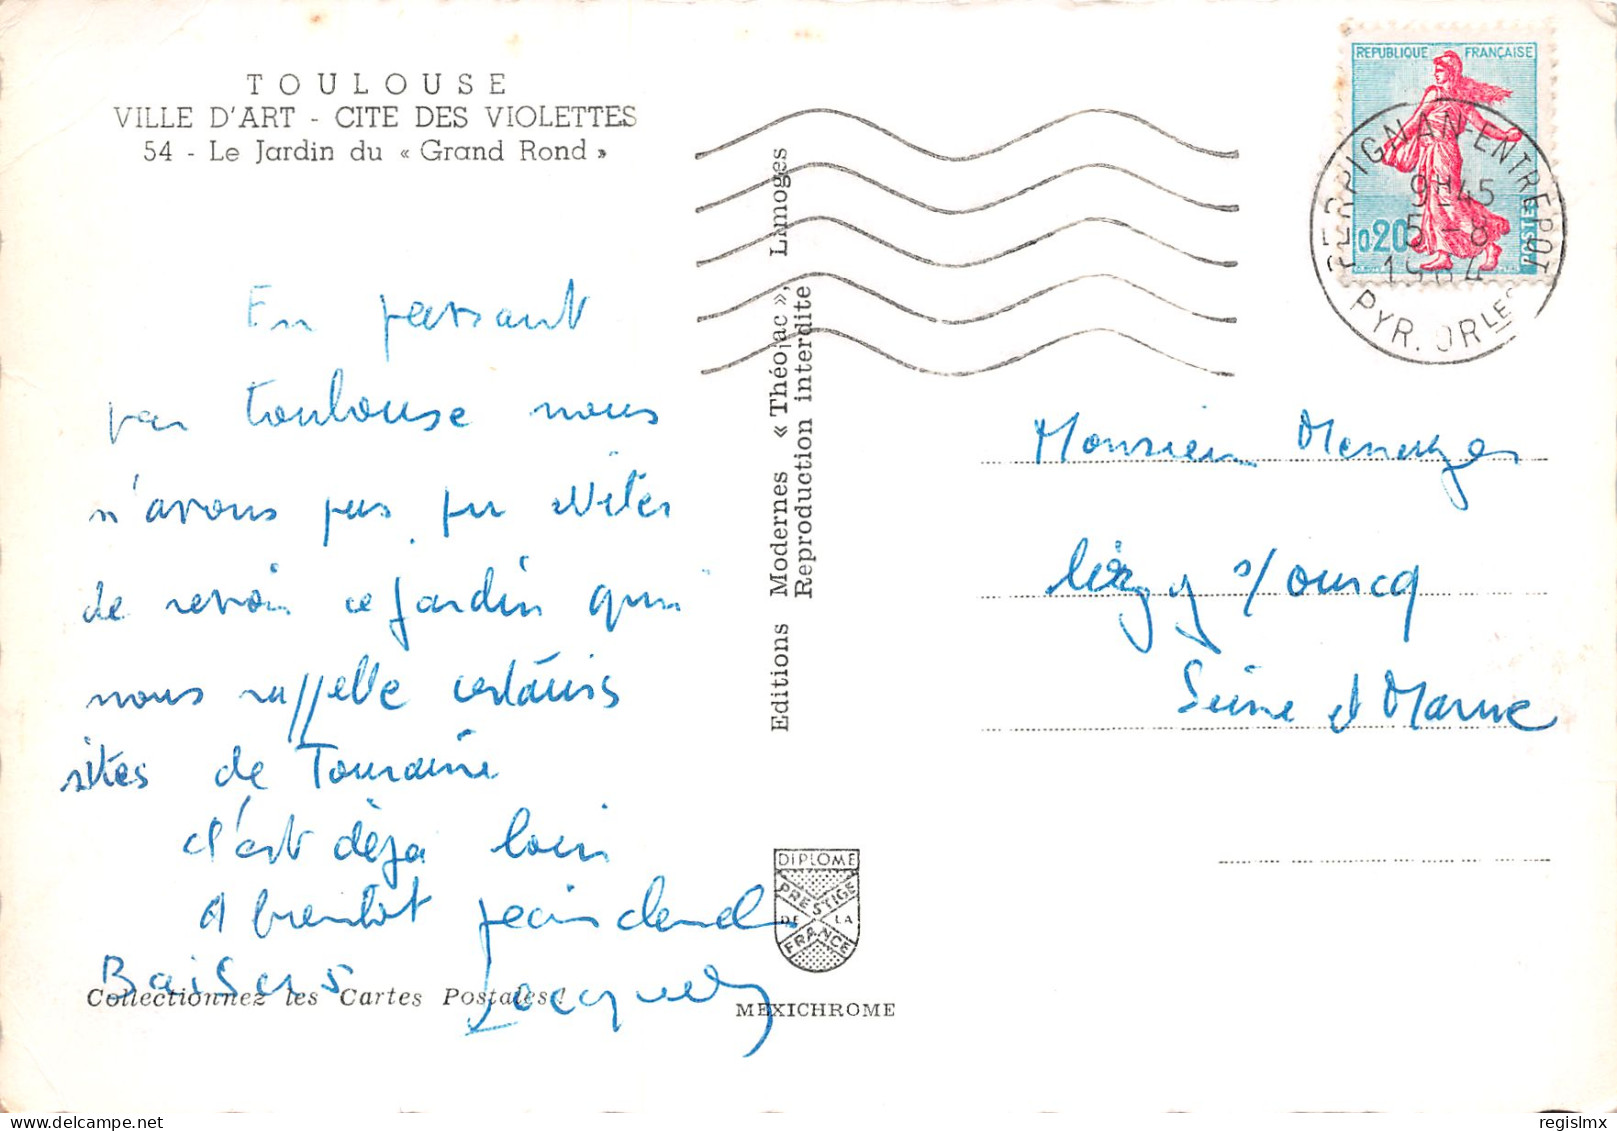 TOULOUSE
VILLE D'ART - CITE DES VIOLETTES
54 - Le Jardin du « Grand Rond »
En passant
par Toulouse nous
n'avons pas pu éviter
de revoir ce jardin qui
nous rappelle certains
sites de Touraine
c'est déja loin
A bientot Jean claude
Baisers Jacquely
Collectionnez les Cartes Postales!
Editions Modernes « Théojac », Limoges
Reproduction interdite
DIPLOME
PRESTIGE
DE LA
FRANCE
MEXICHROME
REPUBLIQUE FRANÇAISE
0,20
POSTES
PERPIGNAN-ENTREPOT
9H45
5-8
1964
PYR. ORLES
Monsieur
lizy s/ourcq
Seine et Marne
delcampe.net
regisimx